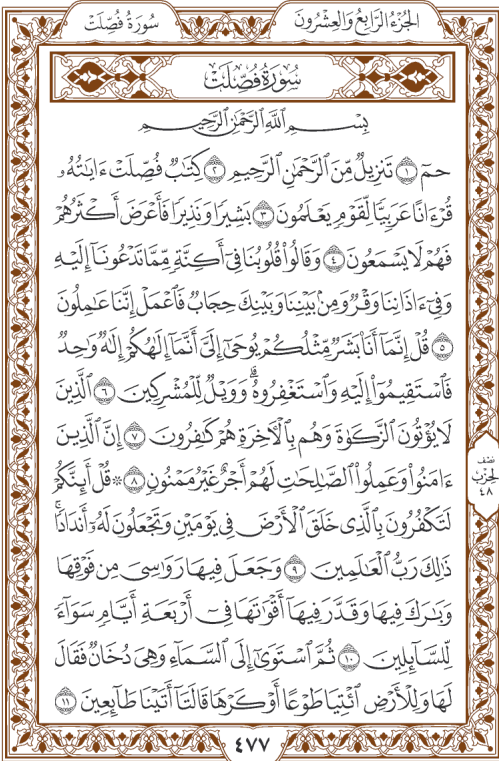 سُورَةُ فُصِّلَتْ
الجُزْءُ الرَّابِعُ وَالعِشْرُونَ
سُورَةُ فُصِّلَتْ
بِسْمِ ٱللَّهِ ٱلرَّحْمَٰنِ ٱلرَّحِيمِ
حمٓ ١ تَنزِيلٌ مِّنَ ٱلرَّحْمَٰنِ ٱلرَّحِيمِ ٢ كِتَٰبٌ فُصِّلَتْ ءَايَٰتُهُۥ
قُرْءَانًا عَرَبِيًّا لِّقَوْمٍ يَعْلَمُونَ ٣ بَشِيرًا وَنَذِيرًا فَأَعْرَضَ أَكْثَرُهُمْ
فَهُمْ لَا يَسْمَعُونَ ٤ وَقَالُوا۟ قُلُوبُنَا فِىٓ أَكِنَّةٍ مِّمَّا تَدْعُونَآ إِلَيْهِ
وَفِىٓ ءَاذَانِنَا وَقْرٌ وَمِنۢ بَيْنِنَا وَبَيْنِكَ حِجَابٌ فَٱعْمَلْ إِنَّنَا عَٰمِلُونَ
٥ قُلْ إِنَّمَآ أَنَا۠ بَشَرٌ مِّثْلُكُمْ يُوحَىٰٓ إِلَىَّ أَنَّمَآ إِلَٰهُكُمْ إِلَٰهٌ وَٰحِدٌ
فَٱسْتَقِيمُوٓا۟ إِلَيْهِ وَٱسْتَغْفِرُوهُ ۗ وَوَيْلٌ لِّلْمُشْرِكِينَ ٦ ٱلَّذِينَ
لَا يُؤْتُونَ ٱلزَّكَوٰةَ وَهُم بِٱلْءَاخِرَةِ هُمْ كَٰفِرُونَ ٧ إِنَّ ٱلَّذِينَ
ءَامَنُوا۟ وَعَمِلُوا۟ ٱلصَّٰلِحَٰتِ لَهُمْ أَجْرٌ غَيْرُ مَمْنُونٍ ٨ ۞ قُلْ أَئِنَّكُمْ
لَتَكْفُرُونَ بِٱلَّذِى خَلَقَ ٱلْأَرْضَ فِى يَوْمَيْنِ وَتَجْعَلُونَ لَهُۥٓ أَندَادًا ۚ
ذَٰلِكَ رَبُّ ٱلْعَٰلَمِينَ ٩ وَجَعَلَ فِيهَا رَوَٰسِىَ مِن فَوْقِهَا
وَبَٰرَكَ فِيهَا وَقَدَّرَ فِيهَآ أَقْوَٰتَهَا فِىٓ أَرْبَعَةِ أَيَّامٍ سَوَآءً
لِّلسَّآئِلِينَ ١٠ ثُمَّ ٱسْتَوَىٰٓ إِلَى ٱلسَّمَآءِ وَهِىَ دُخَانٌ فَقَالَ
لَهَا وَلِلْأَرْضِ ٱئْتِيَا طَوْعًا أَوْ كَرْهًا قَالَتَآ أَتَيْنَا طَآئِعِينَ ١١
نصف
الحزب
٤٨
٤٧٧